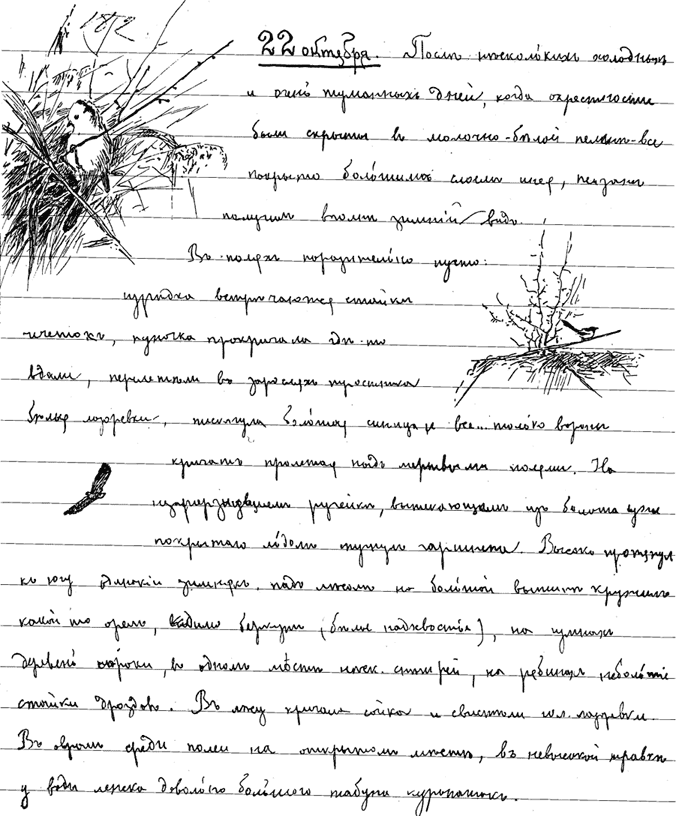 1812.
22 октября. Послѣ нѣсколькихъ холодныхъ
и очень туманныхъ дней, когда окрестности
были скрыты въ молочно-бѣлой пеленѣ - все
покрыто большимъ слоемъ инея,
получили вполнѣ зимній видъ.
Въ поляхъ поразительно пусто:
изрѣдка встрѣчаются стайки
чечетокъ, пуночка прокричала гдѣ-то
вдали, перелетѣли въ заросляхъ тростника
бѣлые лазоревки, пискнула болотная синица и все... только вороны
кричатъ пролетая надъ мертвыми полями. На
незамерзнувшемъ ручейкѣ, вытекающемъ изъ болота уже
покрытаго льдомъ Высоко протянулъ
къ югу зимнякъ, надъ лѣсомъ на большой высотѣ кружилъ
какой то орелъ, видимо беркутъ (бѣлое надхвостье), на гумнахъ
деревень сороки, въ одномъ мѣстѣ неск. снѣгирей, на рябинахъ небольшія
стайки дроздовъ. Въ лѣсу кричали сойки и свистѣли лазоревки.
Въ среди полей на открытомъ мѣстѣ, въ невысокой травкѣ
у воды довольно большого табуна куропатокъ.